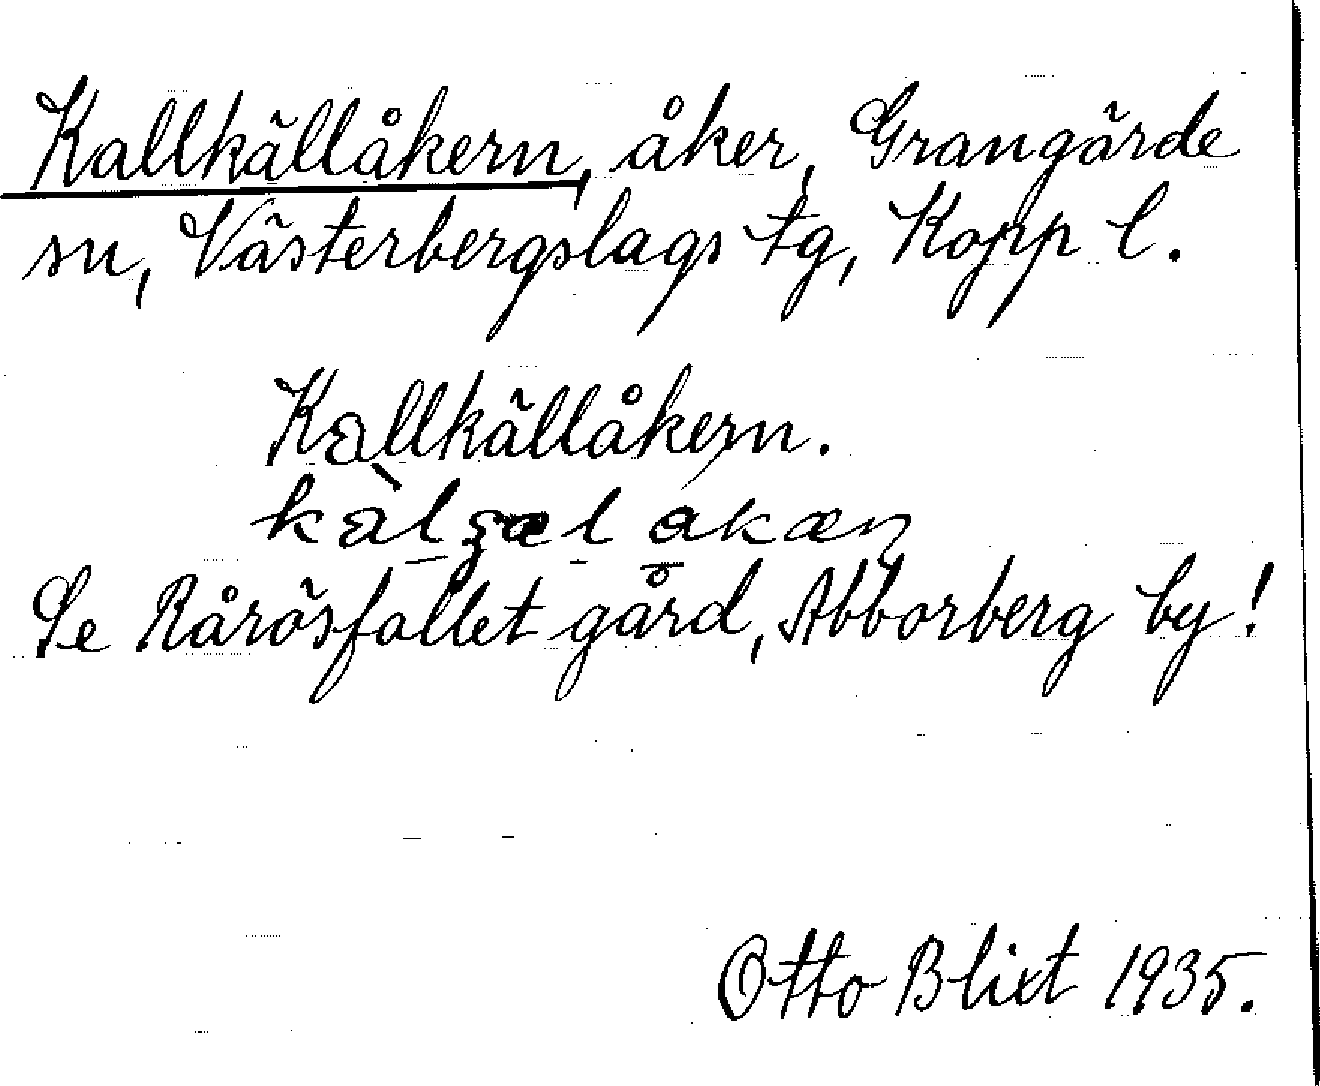 Kallkällåkern, åker, Grangärde
sn, Västerbergslags tg, Kopp l.
Kallkällåkern.
Se Rårösfallet gård, Abborberg by!
Otto Blixt 1935.